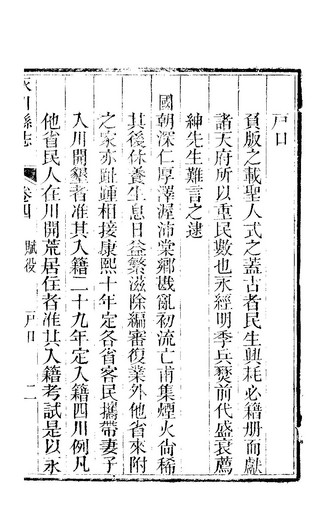 戶口
負版之載聖人式之蓋古者民生與耗必籍册而獻
諸天府所以重民數也永經明季兵燹前代盛衰薦
紳先生難言之逮
國朝深仁厚澤渥沛棠鄉戡亂初流亡甫集煙火尚稀
其後休養生息日益繁滋除編審復業外他省來附
之家亦趾踵相接康熙十年定各省客民攜帶妻子
入川開墾者准其入籍二十九年定入籍四川例凡
他省民人在川開荒居住者准其入籍考試是以永
永川縣志 卷四 賦役 戶口 二